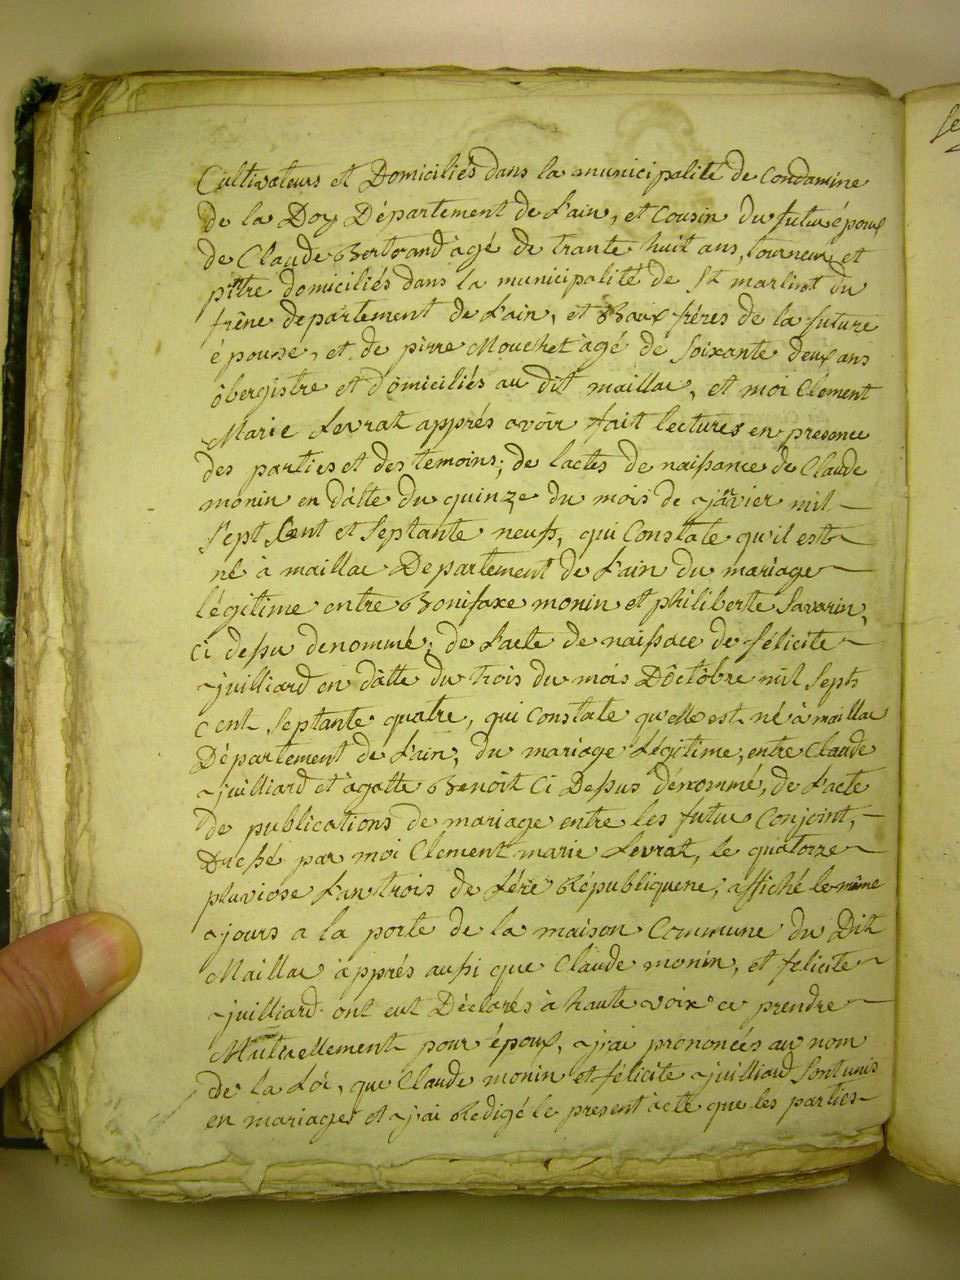 Cultivateurs et Domiciliés dans la municipalité de Condamine
de la Doy Département de L'ain, et Cousin du futur époux
de Claude Bertrand âgé de trante huit ans, tourneur, et
domiciliés dans la municipalité de St martint du
frêne departement de L'ain, et Baux fréres de la future
épouse, et de pirre Mouchet âgé de Soixante deux ans
obergistre et domiciliés au dit maillac, et moi Clément
Marie Levrat apprés avoir fait lectures en presence
des parties et des temoins; de lactes de naissance de Claude
monin en dâtte du quinze du mois de janvier mil
Sept Cent et Septante neufs, qui Constate qu'il est
né à maillac Departement de L'ain du mariage
légitime entre Bonifaxe monin et philiberte Savarin,
ci dessu denommé; de L'acte de naissace de félicite
juilliard en dâtte du trois du mois Dôctôbre mil Septs
cent Septante quatre, qui Constate qu'elle est né à maillac
Département de L'ain, du mariage Légitime, entre Claude
juilliard et agatte Benoît Ci Dessus dénommé, de L'acte
de publications de mariage entre les futur Conjoint,
Dressé par moi Clement marie Levrat, le quatorze
pluviose L'an trois de Lére Républiquene; affiché le même
jours a la porte de la maison Commune du Dit
Maillac apprés aussi que Claude monin, et felicite
juilliard ont eut Déclarés à haute voix ce prendre
Mutuellement pour époux, j'ai prononcés au nom
de la Loi, que Claude monin et félicite juilliard Sont unis
en mariages et j'ai Redigé le present acte que les parties